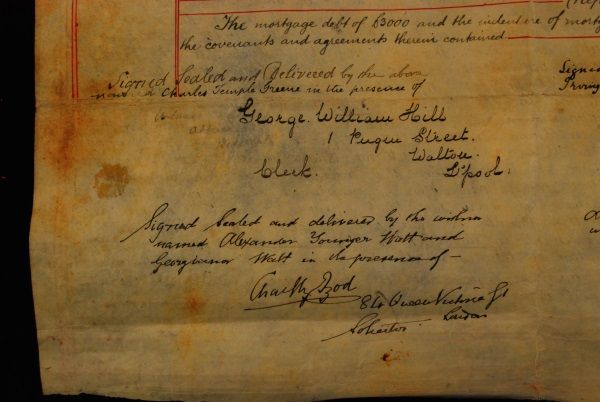 (Re
The mortgage debt of £3000 and the indenture of mortg
the covenants and agreements therein contained
Signed Sealed and Delivered by the above
named Charles Temple Greene in the presence of
Signed
Irving
George William Hill
1 Pugin Street.
Walton.
Clerk. L'pool.
Signed Sealed and delivered by the within
named Alexander Younger Watt and
Georgianna Watt in the presence of —
Queen Victoria St
Solicitor London